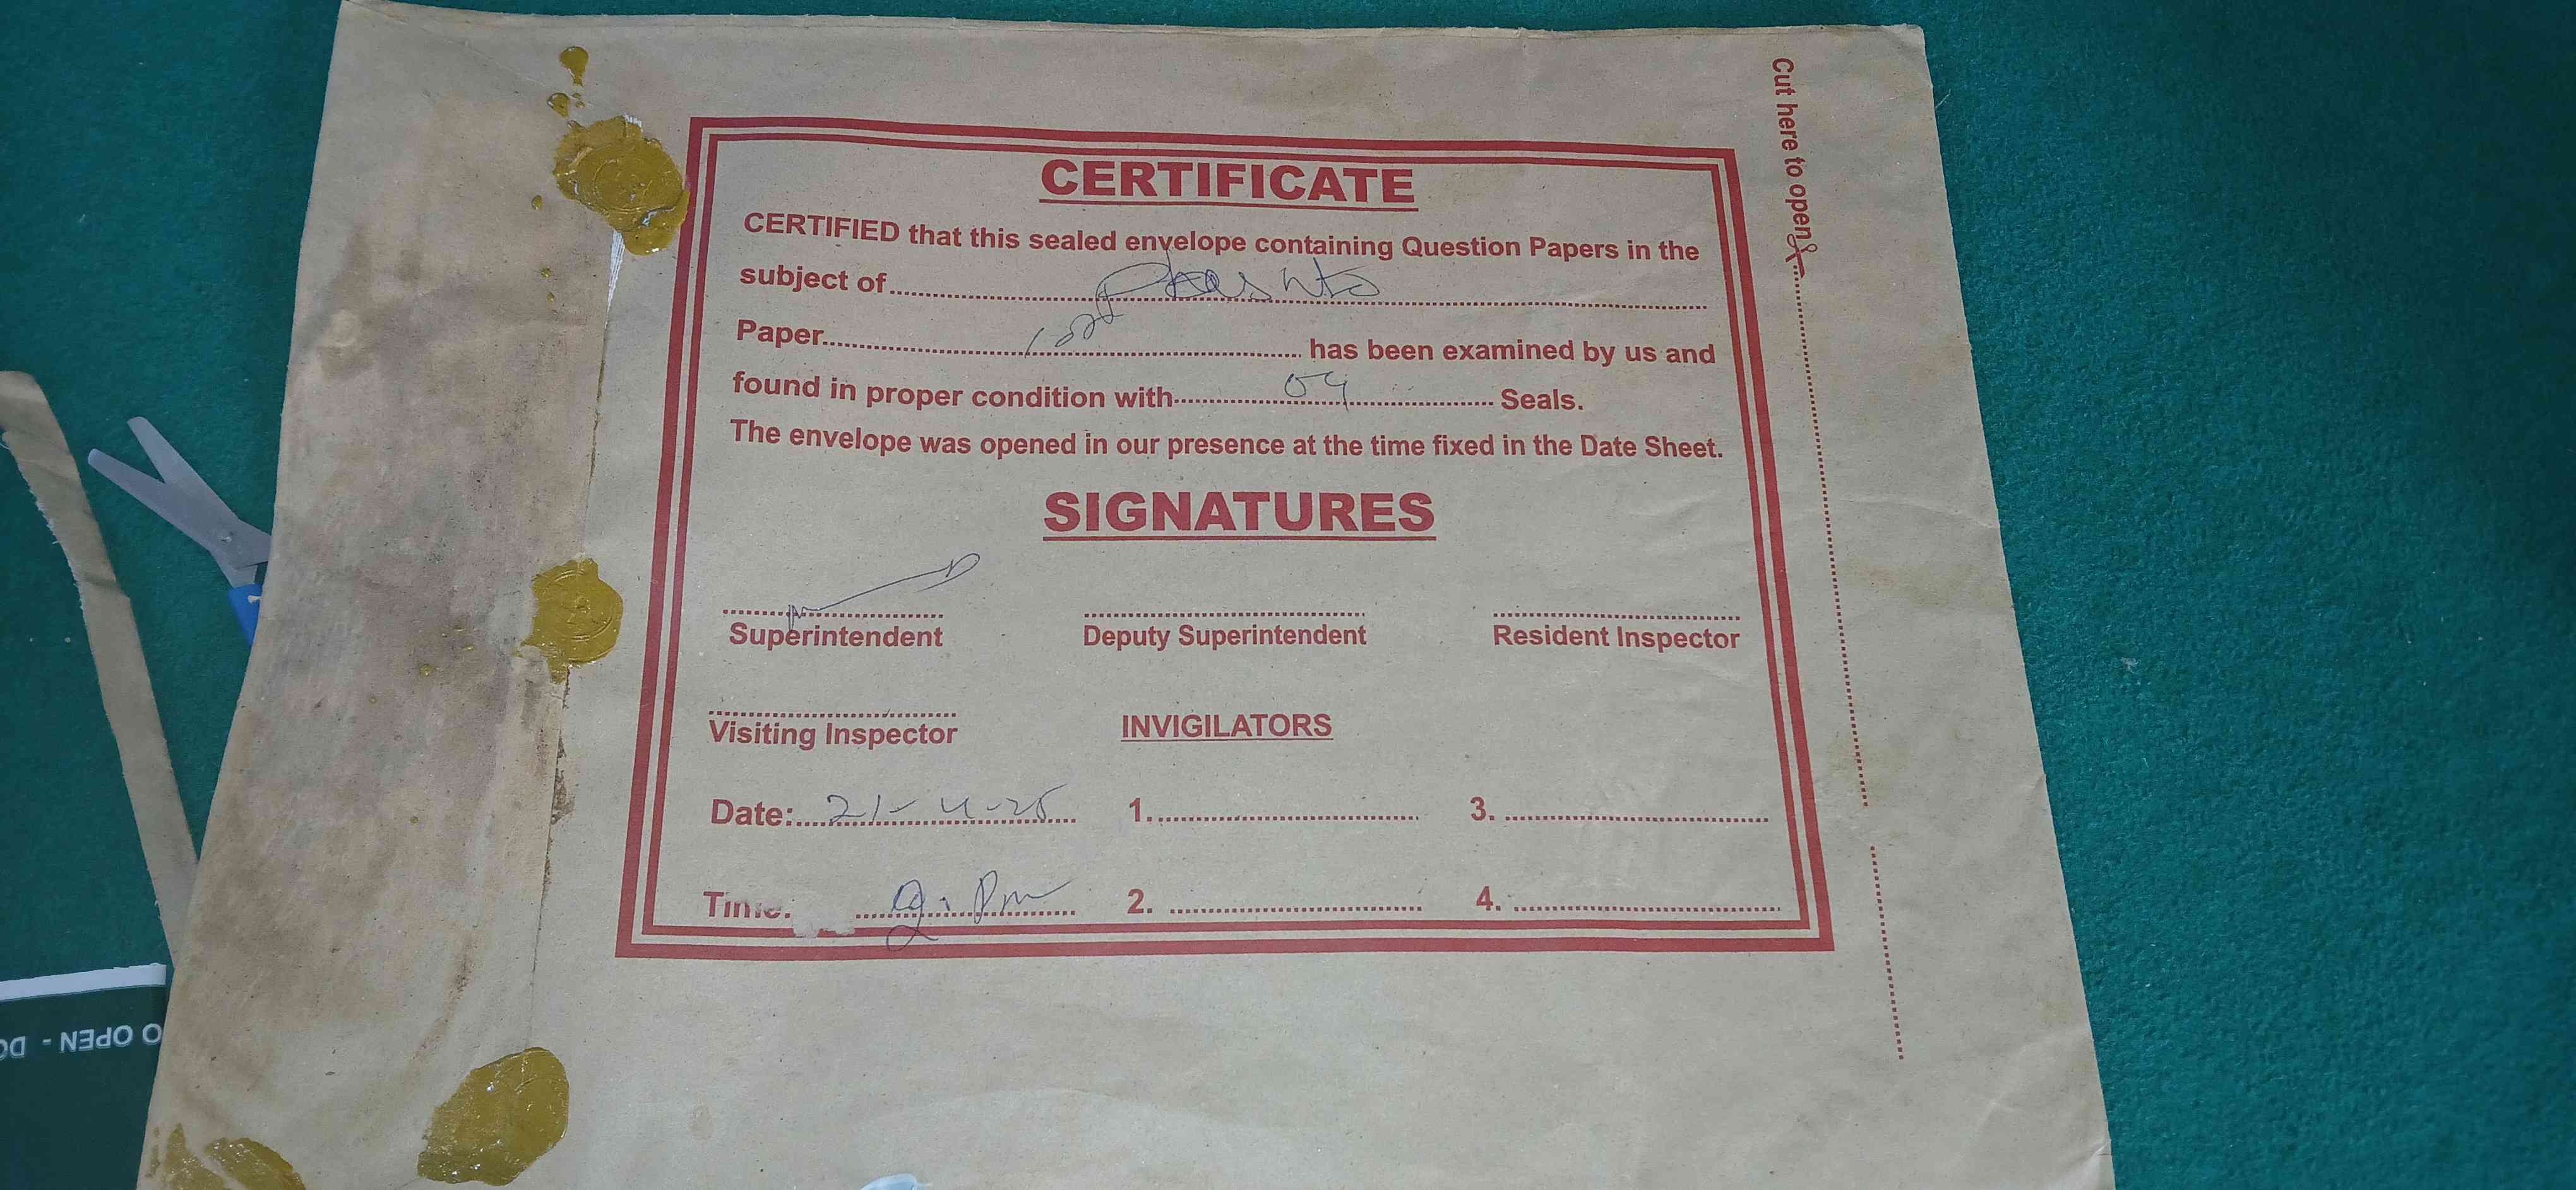 Cut here to open
CERTIFICATE
CERTIFIED that this sealed envelope containing Question Papers in the
subject of Pashto
Paper has been examined by us and
found in proper condition with 04 Seals.
The envelope was opened in our presence at the time fixed in the Date Sheet.
SIGNATURES
Superintendent Deputy Superintendent Resident Inspector
Visiting Inspector INVIGILATORS
Date: 21-4-25 1. 3.
Time: 2. 4.
O OPEN - DO